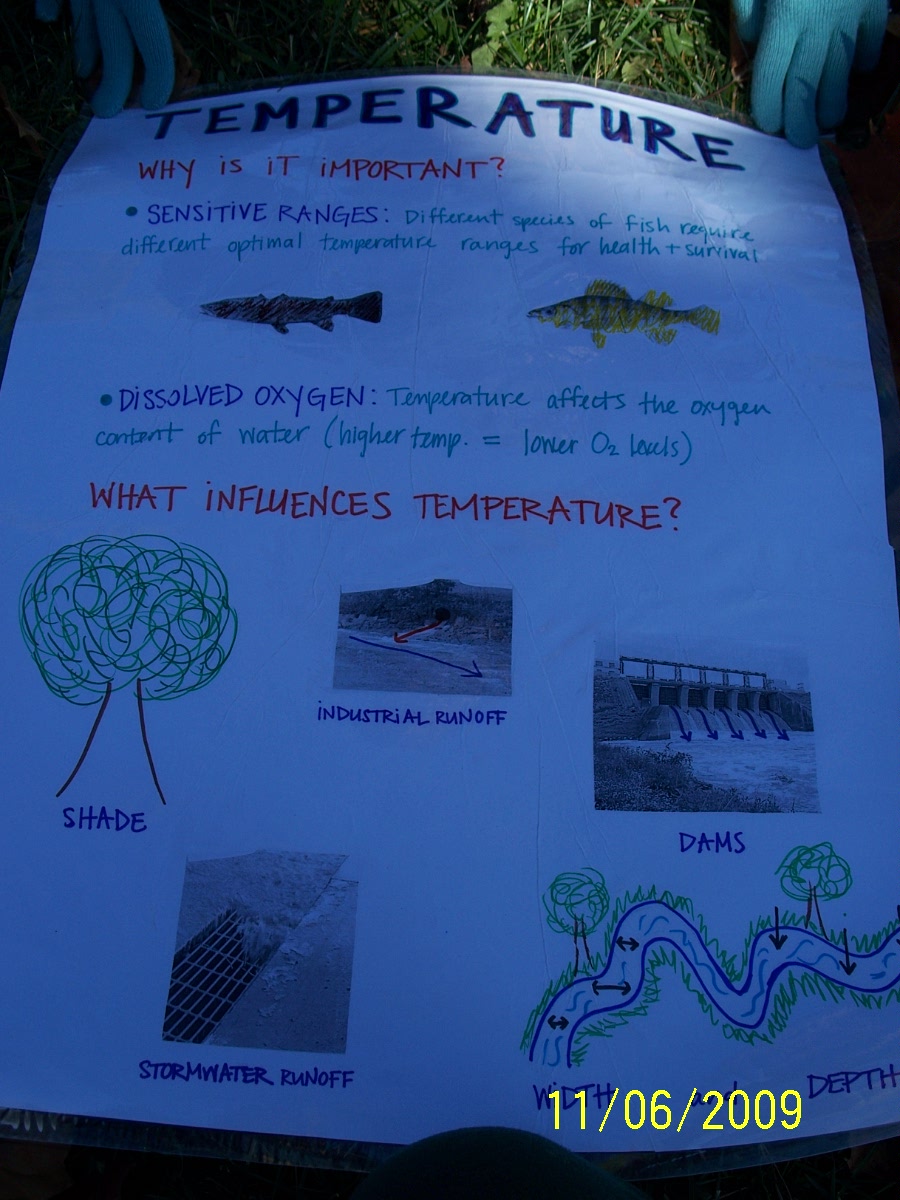 TEMPERATURE
WHY IS IT IMPORTANT?
• SENSITIVE RANGES: Different species of fish require
different optimal temperature ranges for health + survival
• DISSOLVED OXYGEN: Temperature affects the oxygen
content of water (higher temp. = lower O₂ levels)
WHAT INFLUENCES TEMPERATURE?
INDUSTRIAL RUNOFF
SHADE
DAMS
STORMWATER RUNOFF
WIDTH and DEPTH
11/06/2009